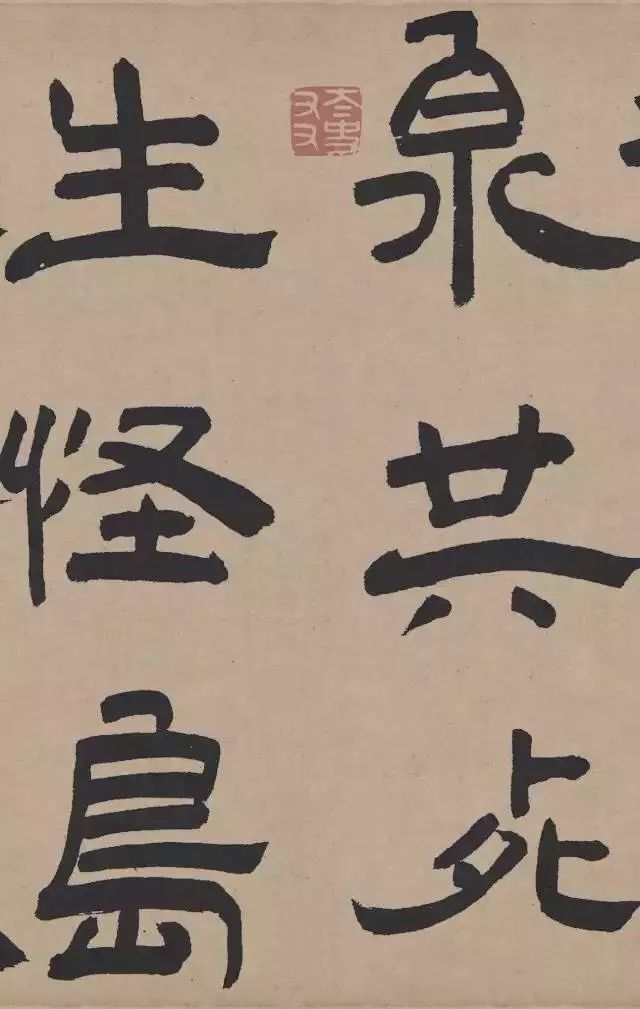 泉共死
生怪島